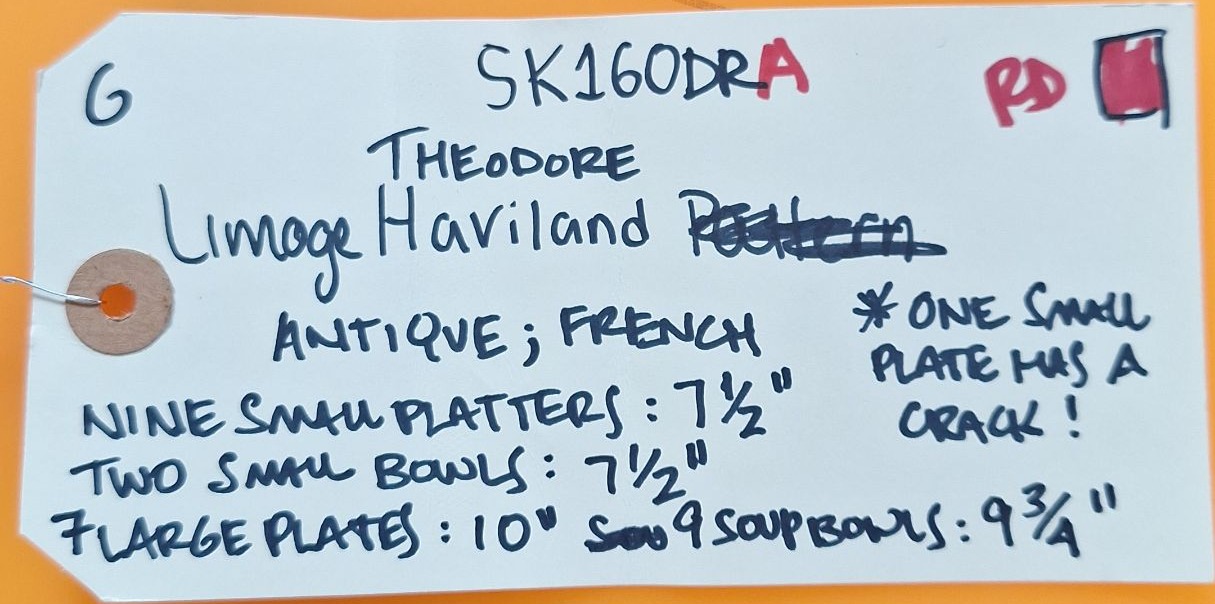 G SK160DRA RD
THEODORE
Limoge Haviland
ANTIQUE; FRENCH
* ONE SMALL
PLATE HAS A
CRACK!
NINE SMALL PLATTERS: 7 1/2"
TWO SMALL BOWLS: 7 1/2"
7 LARGE PLATES: 10" 9 SOUP BOWLS: 9 3/4"